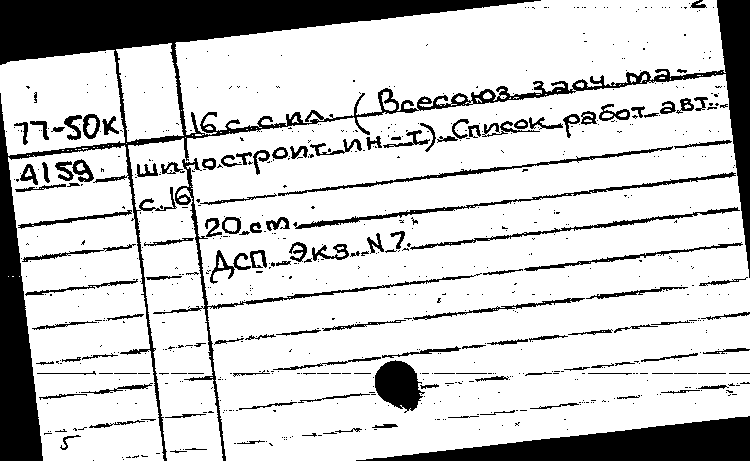 2
77-50к 16 с. с ил. (Всесоюз. заоч. ма-
4159 шиностроит. ин-т). Список работ авт.:
с. 16.
20 cm.
ДСП Экз. N 7.
5